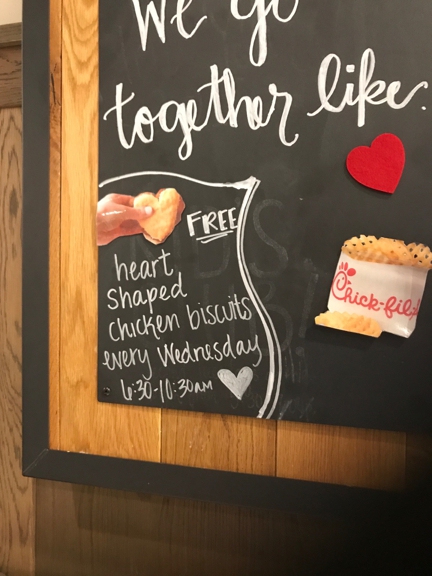 We go
together like
FREE
heart
shaped
chicken biscuits
every Wednesday
6:30-10:30AM
Chick-fil